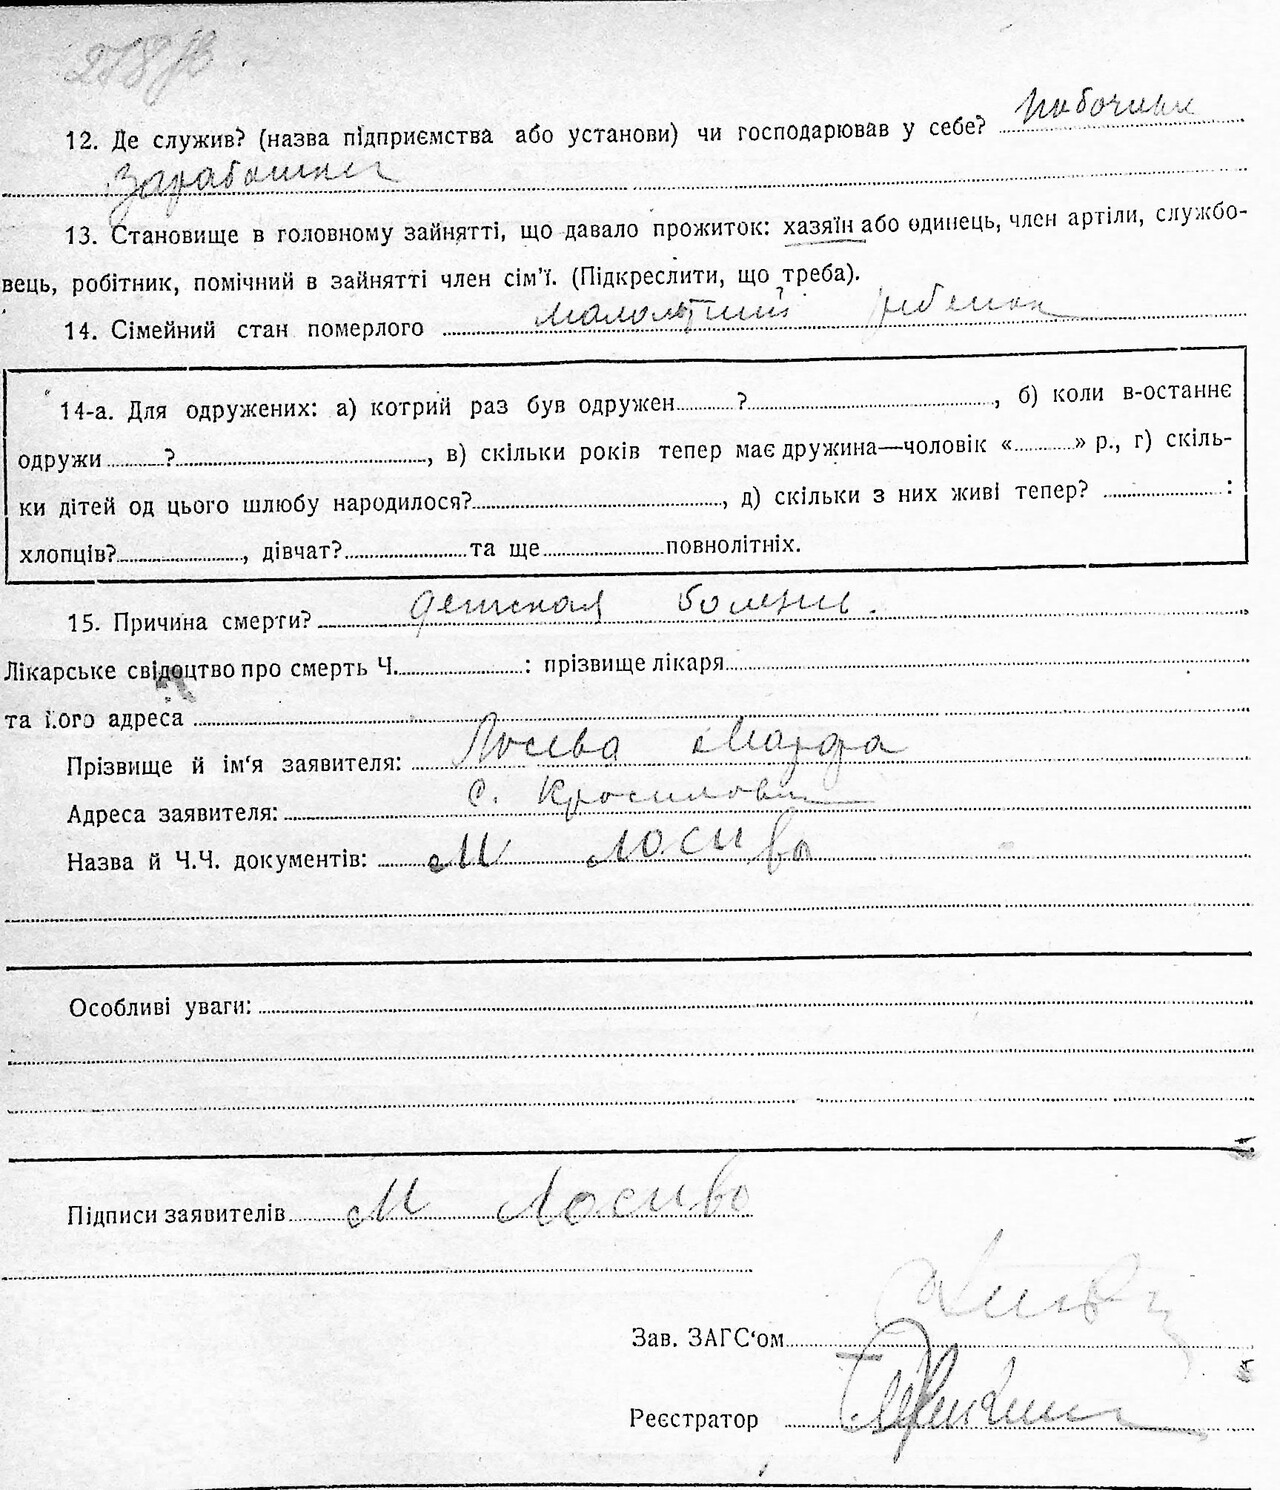 12. Де служив? (назва підприємства або установи) чи господарював у себе? побочный
Заработки
13. Становище в головному зайнятті, що давало прожиток: хазяїн або одинець, член артіли, службо-
вець, робітник, помічний в зайнятті член сім’ї. (Підкреслити, що треба).
14. Сімейний стан померлого малолѣтний ребенок
14-а. Для одружених: а) котрий раз був одружен ?, б) коли в-останнє
одружи ?, в) скільки років тепер має дружина—чоловік « » р., г) скіль-
ки дітей од цього шлюбу народилося?, д) скільки з них живі тепер? :
хлопців?, дівчат? та ще повнолітніх.
15. Причина смерти? детская болезнь.
Лікарське свідоцтво про смерть Ч. : прізвище лікаря
та його адреса
Прізвище й ім‘я заявителя: Лосева Марфа
Адреса заявителя: с.
Назва й Ч.Ч. документів: М Лосива
Особливі уваги:
Підписи заявителів М Лосиво
Зав. ЗАГС‘ом
Реєстратор